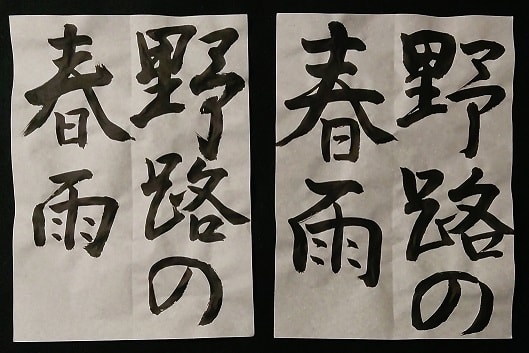 野路の
春雨
野路の
春雨